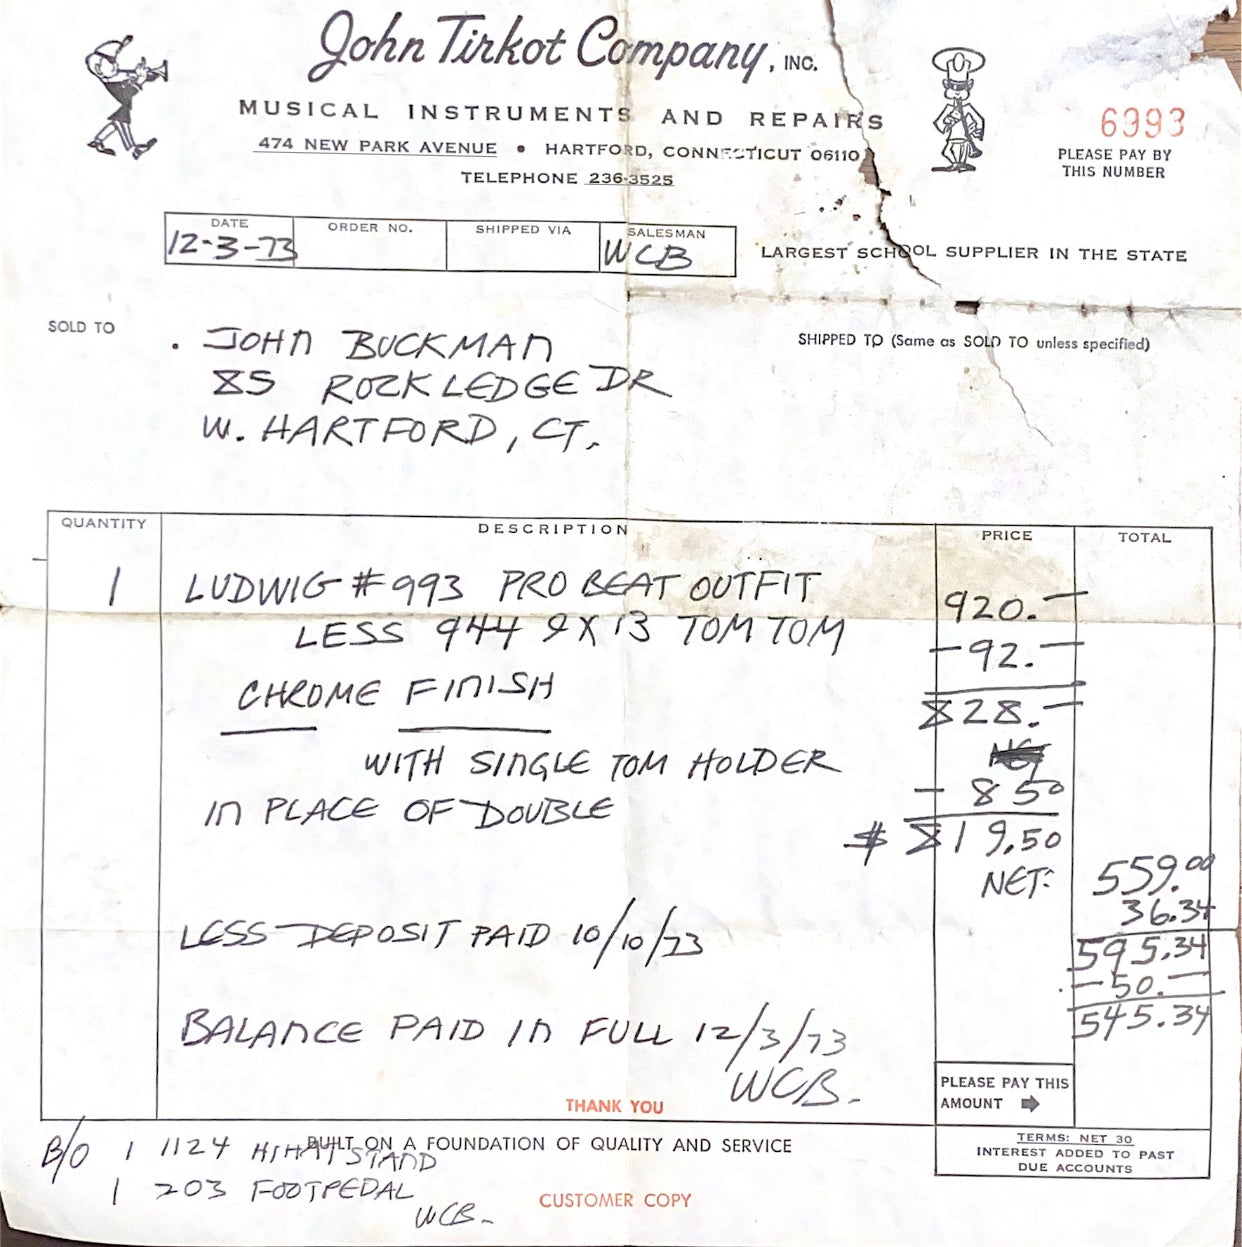 John Tirkot Company, INC.
MUSICAL INSTRUMENTS AND REPAIRS
474 NEW PARK AVENUE • HARTFORD, CONNECTICUT 06110
TELEPHONE 236-3525
6993
PLEASE PAY BY
THIS NUMBER
DATE ORDER NO. SHIPPED VIA SALESMAN
12-3-73 WCB
LARGEST SCHOOL SUPPLIER IN THE STATE
SOLD TO
SHIPPED TO (Same as SOLD TO unless specified)
. JOHN BUCKMAN
85 ROCKLEDGE DR
W. HARTFORD, CT.
QUANTITY DESCRIPTION PRICE TOTAL
1 LUDWIG #993 PRO BEAT OUTFIT 920.—
LESS 944 9X13 TOM TOM —92.—
CHROME FINISH 828.—
WITH SINGLE TOM HOLDER
IN PLACE OF DOUBLE - 8 50
$ 819.50
NET: 559.00
36.34
LESS DEPOSIT PAID 10/10/73 595.34
—50.—
545.34
BALANCE PAID IN FULL 12/3/73
WCB.
THANK YOU
PLEASE PAY THIS
AMOUNT
BUILT ON A FOUNDATION OF QUALITY AND SERVICE
TERMS: NET 30
INTEREST ADDED TO PAST
DUE ACCOUNTS
B/O 1 1124 HIHAT STAND
1 203 FOOTPEDAL
WCB.
CUSTOMER COPY